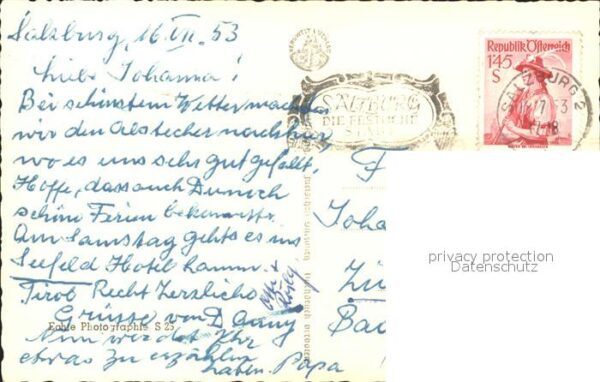 Salzburg, 16. VII. 53
Liebe Johanna!
Bei schönstem Wetter machten
wir den Abstecher
wo es uns sehr gut gefällt.
Hoffe, dass auch Du noch
schöne Ferien bekommst.
Am Samstag gehts es ins
Seefeld Hotel
Tirol Recht Herzliche
Grüsse von D.
Nun werdet Ihr
etwas zu erzählen
haben. Papa
Echte Photographie S 25
SALZBURG
DIE FESTLICHE
STADT
Republik Österreich
1'45
S
SALZBURG 2
Joha
Zü
privacy protection
Datenschutz